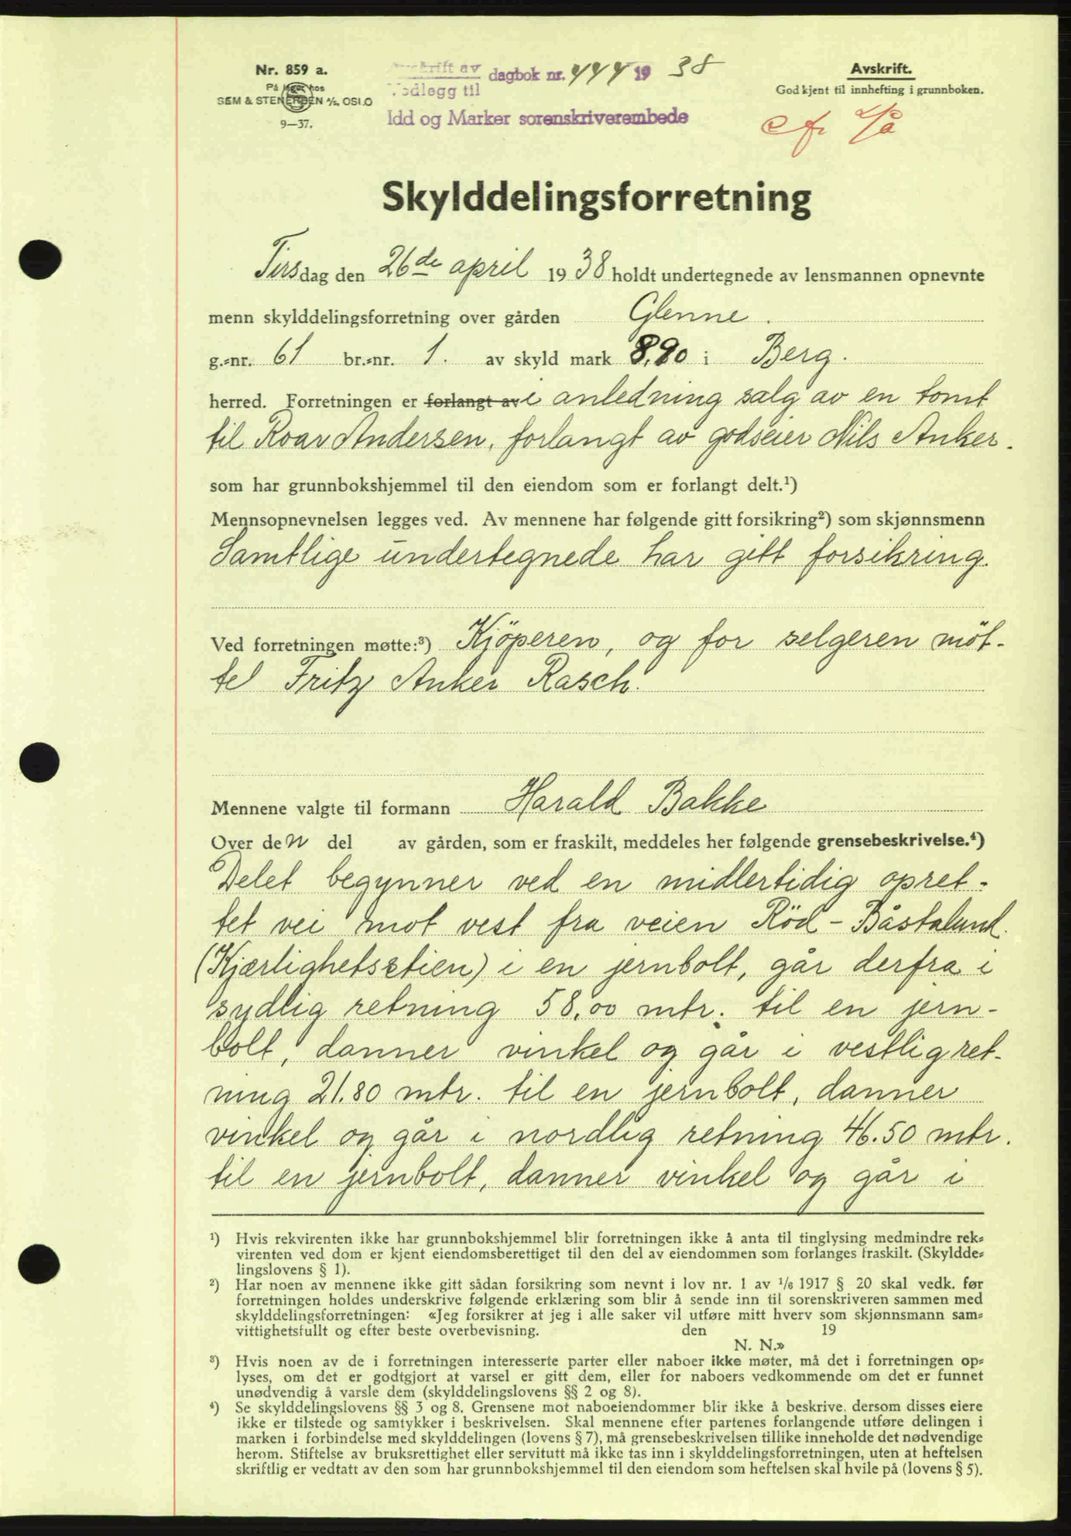 Nr. 859 a.
På lager hos
SEM & STENERSEN A/S, OSLO
9—37.
Avskrift av dagbok nr. 444 1938
Vedlegg til
Idd og Marker sorenskriverembede
Avskrift.
Godkjent til innhefting i grunnboken.
Skylddelingsforretning
Tirsdag den 26de april 1938 holdt undertegnede av lensmannen opnevnte
menn skylddelingsforretning over gården Glenne.
g.-nr. 61 br.-nr. 1. av skyld mark 8,90 i Berg.
herred. Forretningen er forlangt av i anledning salg av en tomt
til Roar Andersen, forlangt av godseier Nils Anker.
som har grunnbokshjemmel til den eiendom som er forlangt delt.¹)
Mennsopnevnelsen legges ved. Av mennene har følgende gitt forsikring²) som skjønnsmenn
Samtlige undertegnede har gitt forsikring.
Ved forretningen møtte:³) Kjöperen, og for selgeren möt-
tel Fritz Anker Rasch.
Mennene valgte til formann Harald Bakke
Over den del av gården, som er fraskilt, meddeles her følgende grensebeskrivelse.⁴)
Delet begynner ved en midlertidig opret-
tet vei mot vest fra veien Röd - Båstalund.
(Kjærlighetsstien) i en jernbolt, går derfra i
sydlig retning 58,00 mtr. til en jern-
bolt, danner vinkel og går i vestlig ret-
ning 21.80 mtr. til en jernbolt, danner
vinkel og går i nordlig retning 46.50 mtr.
til en jernbolt, danner vinkel og går i
¹) Hvis rekvirenten ikke har grunnbokshjemmel blir forretningen ikke å anta til tinglysing medmindre rek-
virenten ved dom er kjent eiendomsberettiget til den del av eiendommen som forlanges fraskilt. (Skyldde-
lingslovens § 1).
²) Har noen av mennene ikke gitt sådan forsikring som nevnt i lov nr. 1 av 1/6 1917 § 20 skal vedk. før
forretningen holdes underskrive følgende erklæring som blir å sende inn til sorenskriveren sammen med
skylddelingsforretningen: «Jeg forsikrer at jeg i alle saker vil utføre mitt hverv som skjønnsmann sam-
vittighetsfullt og efter beste overbevisning. den 19
N. N.»
³) Hvis noen av de i forretningen interesserte parter eller naboer ikke møter, må det i forretningen op-
lyses, om det er godtgjort at varsel er gitt dem, eller for naboers vedkommende om det er funnet
unødvendig å varsle dem (skylddelingslovens §§ 2 og 8).
⁴) Se skylddelingslovens §§ 3 og 8. Grensene mot naboeiendommer blir ikke å beskrive, dersom disses eiere
ikke er tilstede og samtykker i beskrivelsen. Skal mennene efter partenes forlangende utføre delingen i
marken i forbindelse med skylddelingen (lovens § 7), må grensebeskrivelsen tillike inneholde det nødvendige
herom. Stiftelse av bruksrettighet eller servitutt må ikke tas inn i skylddelingsforretningen, uten at heftelsen
skriftlig er vedtatt av den som har grunnbokshjemmel til den eiendom som heftelsen skal hvile på (lovens § 5).